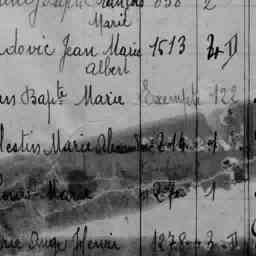 Joseph François 656 2
Marie
udovic Jean Marie 1513 2 D
Albert
Bapte Marie Exempté 122
lestin Marie Alexandre 219
Louis Marie 1
rie Ange Henri 1278 3 D